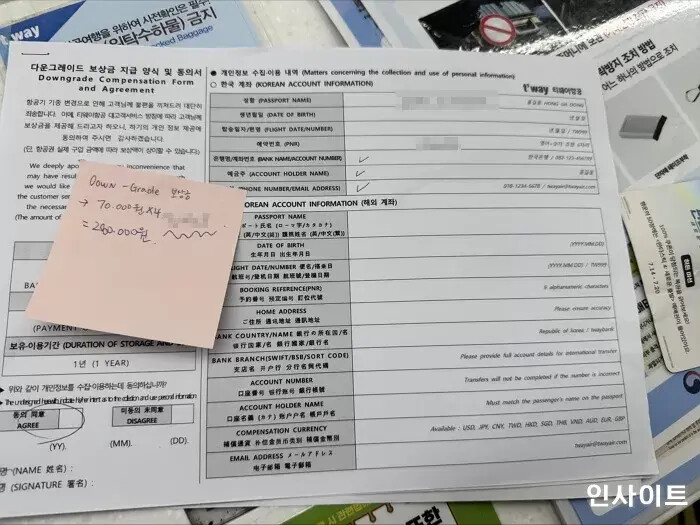 t'way
여행을 위하여 사전확인은 필수
(위탁수하물) 금지
Baggage
다운그레이드 보상금 지급 양식 및 동의서
Downgrade Compensation Form
and Agreement
항공기 기종 변경으로 인해 고객님께 불편을 끼쳐드려 대단히
죄송합니다. 이에 티웨이항공 대고객서비스 방침에 따라 고객님께
보상금을 제공해 드리고자 하오니, 하기의 개인 정보 제공에
동의하여 주시면 감사하겠습니다.
(단, 항공권 실제 구입 금액에 따라 보상액이 상이할 수 있습니다.)
We deeply
inconvenience that
may have
we would like
the customer
the necessary
(The amount of
Down-Grade 보상금
→ 70.000원 X4
= 280.000원.
(PAYMENT
보유·이용기간 (DURATION OF STORAGE AND
1년 (1 YEAR)
▶ 위와 같이 개인정보를 수집·이용하는데 동의하십니까?
동의 同意
AGREE
미동의 未同意
DISAGREE
(YY). (MM). (DD).
(NAME 姓名) :
(SIGNATURE 署名) :
● 개인정보 수집·이용 내역 (Matters concerning the collection and use of personal information)
○ 한국 계좌 (KOREAN ACCOUNT INFORMATION)
t'way 티웨이항공
성함 (PASSPORT NAME)
홍길동 HONG GIL DONG
생년월일 (DATE OF BIRTH)
년월일
탑승일자/편명 (FLIGHT DATE/NUMBER)
년월일 / TW999
예약번호 (PNR)
은행명/계좌번호 (BANK NAME/ACCOUNT NUMBER)
예금주 (ACCOUNT HOLDER NAME)
홍길동
PHONE NUMBER/EMAIL ADDRESS)
KOREAN ACCOUNT INFORMATION (해외 계좌)
PASSPORT NAME
DATE OF BIRTH
生年月日 出生年月日
(YYYY.MM.DD)
FLIGHT DATE/NUMBER 便名/搭乗日
(YYYY.MM.DD) / TW999
BOOKING REFERENCE(PNR)
予約番号 预定编号 訂位代號
6 alphanumeric characters
HOME ADDRESS
ご住所 通讯地址 通訊地址
Please ensure accuracy
BANK COUNTRY/NAME 銀行の所在国/名
银行国家/名 銀行國家/銀行名
Republic of Korea / twaybank
BANK BRANCH(SWIFT/BSB/SORT CODE)
支店名 开户行 分行名與代碼
Please provide full account details for international transfer
ACCOUNT NUMBER
口座番号 银行账号 銀行帳號
Transfers will not be completed if the number is incorrect
ACCOUNT HOLDER NAME
口座名義(カナ) 账户户名 帳戶戶名
Must match the passenger's name on the passport
COMPENSATION CURRENCY
補償通貨 补偿金货币类别 補償金幣別
Available : USD, JPY, CNY, TWD, HKD, SGD, THB, VND, AUD, EUR, GBP
EMAIL ADDRESS メールアドレス
电子邮箱 電子郵箱
twayair@twayair.com
인사이트